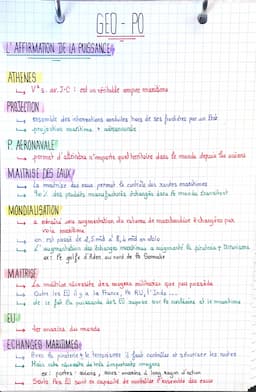 GEO - PO
L'AFFIRMATION DE LA PUISSANCE
ATHENES
↳ Vᵉ s. av. J-C : est un véritable empire maritime
PROJECTION
↳ ensemble des interventions conduites hors de ses frontières par un État
↳ projection maritime + aéronavale
P. AERONAVALE
↳ permet d'atteindre n'importe quel territoire dans le monde depuis les océans
MAITRISE DES EAUX
↳ la maitrise des eaux permet le contrôle des routes maritimes
↳ 90% des produits manufacturés échangés dans le monde transitent
MONDIALISATION
↳ a généré une augmentation du volume de marchandise échangées par
voie maritime
↳ on est passé de 2,5 md à 8,4 md en
↳ l'augmentation des échanges maritimes a augmenté la piraterie + terrorisme
ex : le golfe d'Aden au nord de la Somalie
MAITRISE
↳ La maitrise nécessite des moyens militaires que peu possède
↳ Outre les EU il y a la France, le RU, l'Inde ...
↳ de ce fait la puissance des EU repose sur le contrôle et le maritime
EU
↳ 1er marine du monde
ECHANGES MARITIMES
↳ Avec la piraterie + le terrorisme il faut contrôler et sécuriser les routes
↳ Mais cela nécessite de très importants moyens
ex : portes-avions, sous-marins à long rayon d'action
↳ Seuls les EU sont en capacité de contrôler l'ensemble des eaux